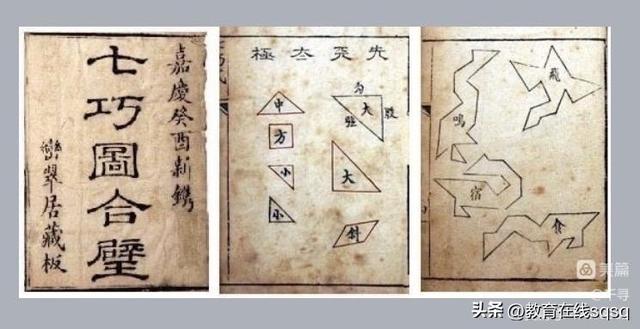 嘉慶癸酉新鐫
七巧圖合壁
巒翠居藏板
先天太極
勾
大
股
中
方
小
大
小
斜
飛
鳴
宿
食
美篇
@千寻
头条 @教育在线sqsq